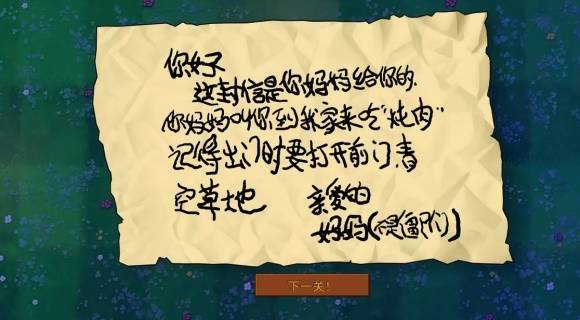 你好
这封信是你妈妈给你的.
你妈妈叫你到我家来吃“炖肉”
记得出门时要打开前门,青
空草地 亲爱的
妈妈(不是僵尸们)
下一关!